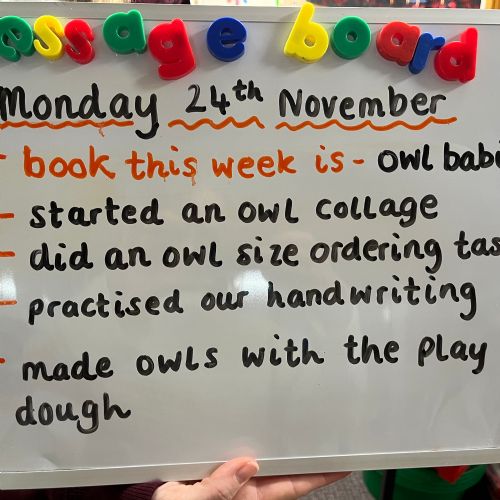 essage board
Monday 24th November
- book this week is - owl babi
- started an owl collage
- did an owl size ordering tas
- practised our handwriting
- made owls with the play
dough